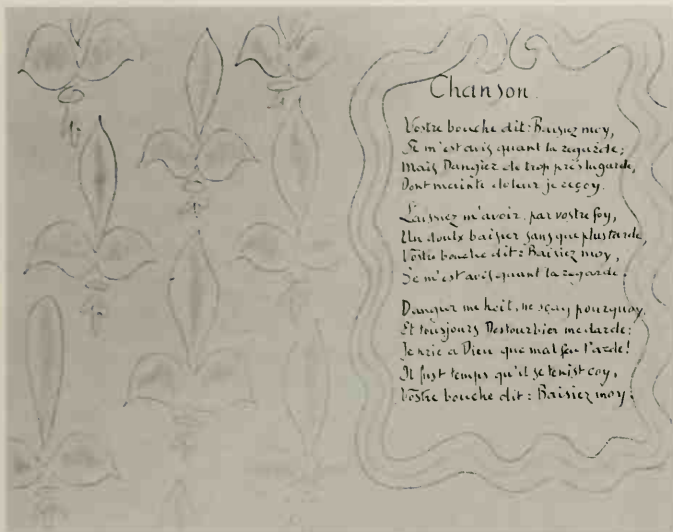 Chanson.
Vostre bouche dit: Baisiez moy,
Se m'est avis quant la regarde;
Mais Dangier de trop près la garde,
Dont mainte doleur je reçoy.
Laissiez m'avoir, par vostre foy,
Un doulx baisier sans que plus tarde,
Vostre bouche dit: Baisiez moy,
Se m'est avis quant la regarde.
Dangier me heit, ne sçay pourquoy,
Et tousjours Destourbier me darde;
Je prie a Dieu que mal feu l'arde!
Il fust temps qu'il se tenist coy,
Vostre bouche dit: Baisiez moy.